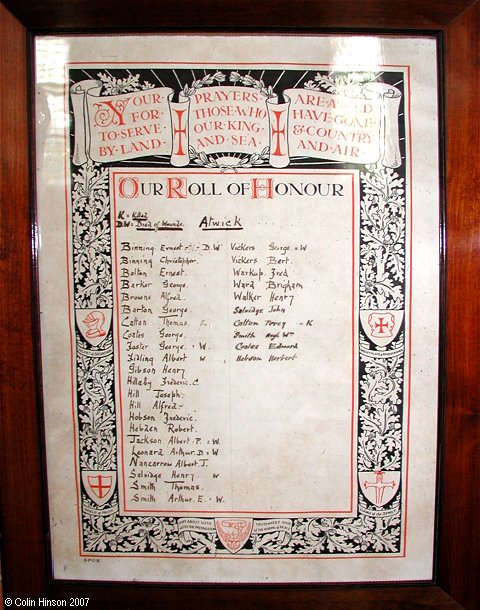 YOUR · PRAYERS · ARE ASKED
FOR · THOSE · WHO HAVE GONE
TO · SERVE · OUR · KING · & COUNTRY
BY · LAND · AND · SEA · AND · AIR
OUR ROLL OF HONOUR
K = Killed
D.W = Died of Wounds. Atwick
Binning Ernest - D.W
Binning Christopher.
Bolton Ernest.
Barker George.
Browne Alfred.
Barton George.
Catton Thomas
Coates George.
Foster George. · W.
Fidling Albert W
Gibson Henry
Hillaby Frederic. C
Hill Joseph.
Hill Alfred.
Hobson Frederic.
Hebden Robert.
Jackson Albert. P. = W.
Leonard Arthur. D. = W
Nancarrow Albert J.
Salvidge Henry. W
Smith Thomas.
Smith Arthur. E. · W.
Vickers George. = W
Vickers Bert.
Warkup. Fred
Ward Brigham
Walker Henry
Salvidge John
Catton Percy - K
Smith Hugh Wm
Coates Edward
Hobson Herbert
GIRT ABOUT WITH
S.P.C.K
© Colin Hinson 2007